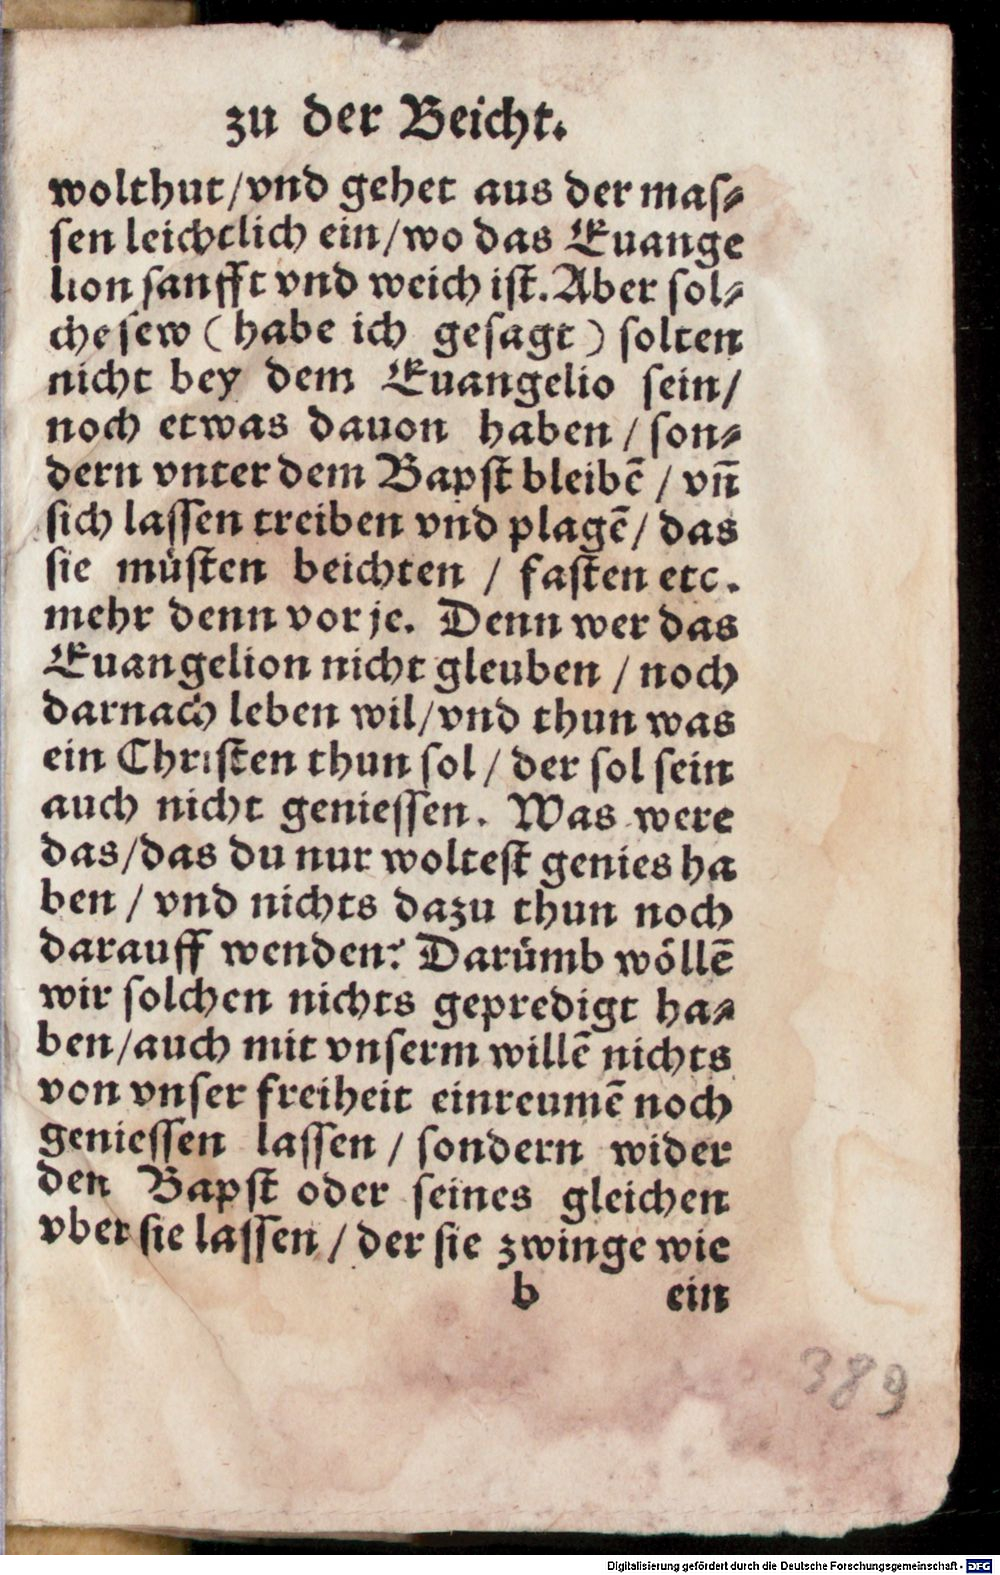 zu der Beicht.
wolthut/vnd gehet aus der mas⸗
sen leichtlich ein/wo das Euange
lion sanfft vnd weich ist. Aber sol⸗
che sew (habe ich gesagt) solten
nicht bey dem Euangelio sein/
noch etwas dauon haben / son⸗
dern vnter dem Bapst bleibē / vñ
sich lassen treiben vnd plagē/ das
sie müsten beichten / fasten etc.
mehr denn vor je. Denn wer das
Euangelion nicht gleuben / noch
darnach leben wil/vnd thun was
ein Christen thun sol/ der sol sein
auch nicht geniessen. Was were
das/das du nur woltest genies ha
ben / vnd nichts dazu thun noch
darauff wenden? Darümb wöllē
wir solchen nichts gepredigt ha⸗
ben/auch mit vnserm willē nichts
von vnser freiheit einreumē noch
geniessen lassen / sondern wider
den Bapst oder seines gleichen
vber sie lassen / der sie zwinge wie
b ein
389
Digitalisierung gefördert durch die Deutsche Forschungsgemeinschaft - DFG